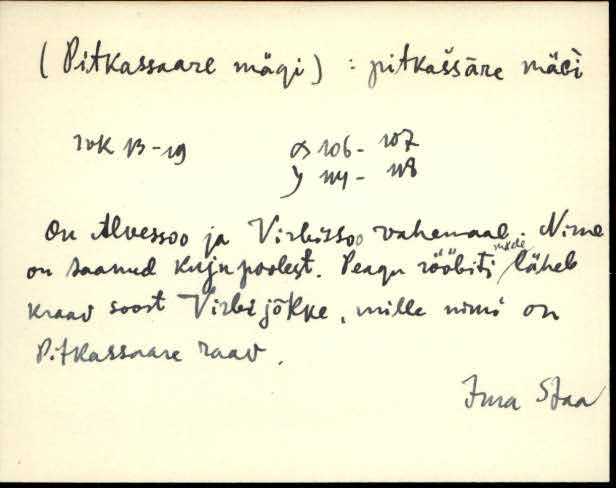 (Pitkassaare mägi) : pitkaššāre mäcì
rvk 13-19 x 106 - 107
y 114 - 118
On Alvessoo ja Virbissoo vahemaal. Nime
on saanud kuju poolest. Peagu rööbiti mäele läheb
kraav soost Virbi jõkke, mille nimi on
Pitkassaare raav.
Irma Staa